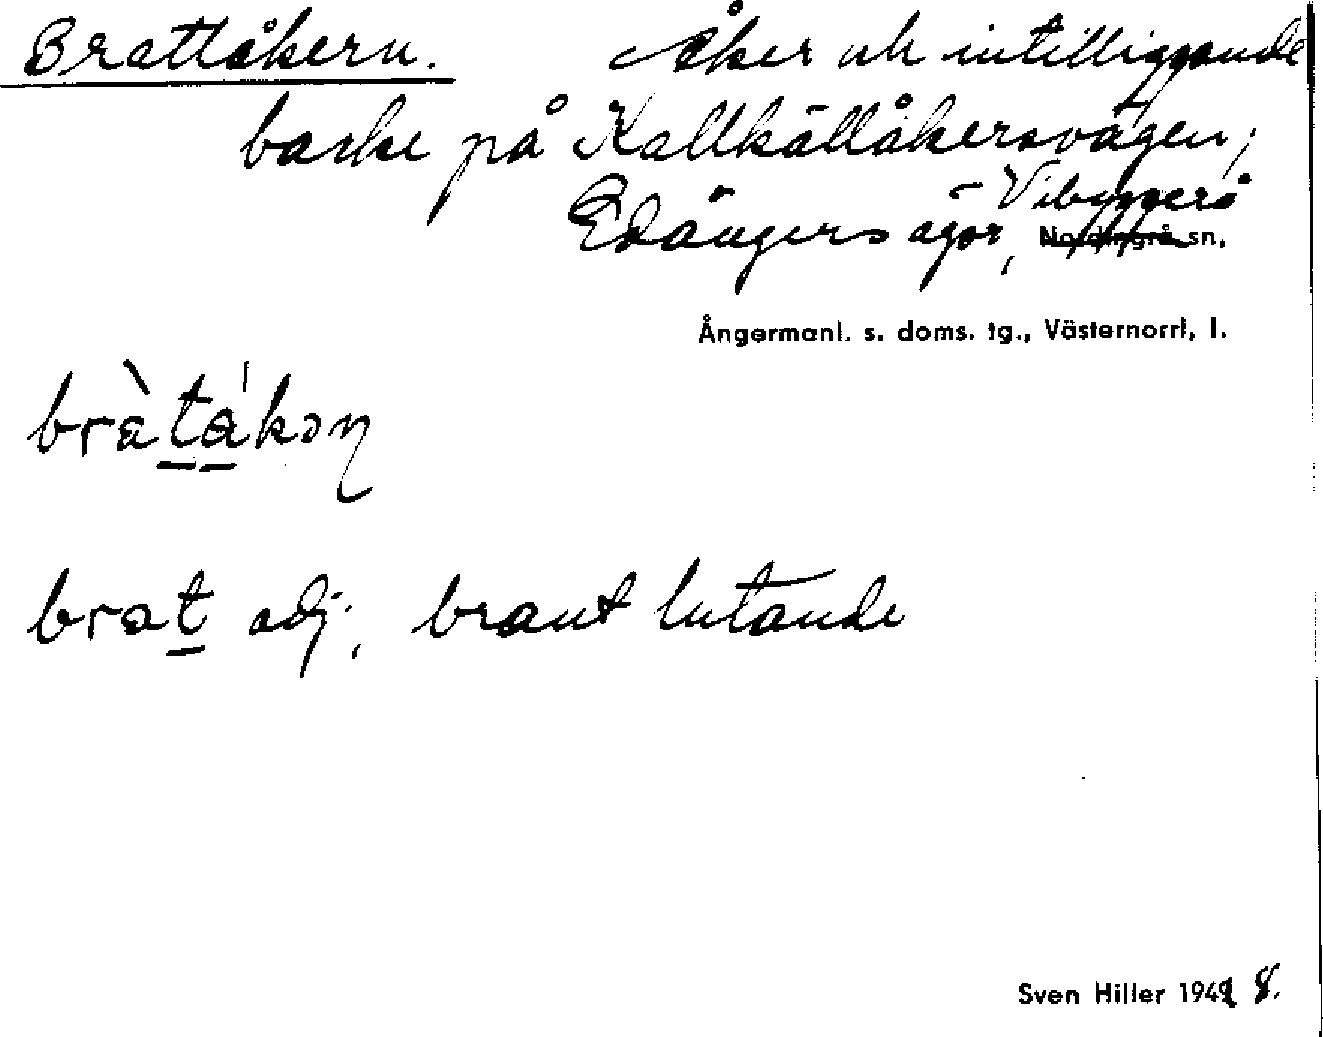 Brattåkern. Åker och intilliggande
backe på Kallkällåkersvägen;
Edångers ägor, Vibyggerå
Nordingrå sn,
Ångermanl. s. doms. tg., Västernorrl. l.
brat adj., brant lutande
Sven Hiller 194 8.